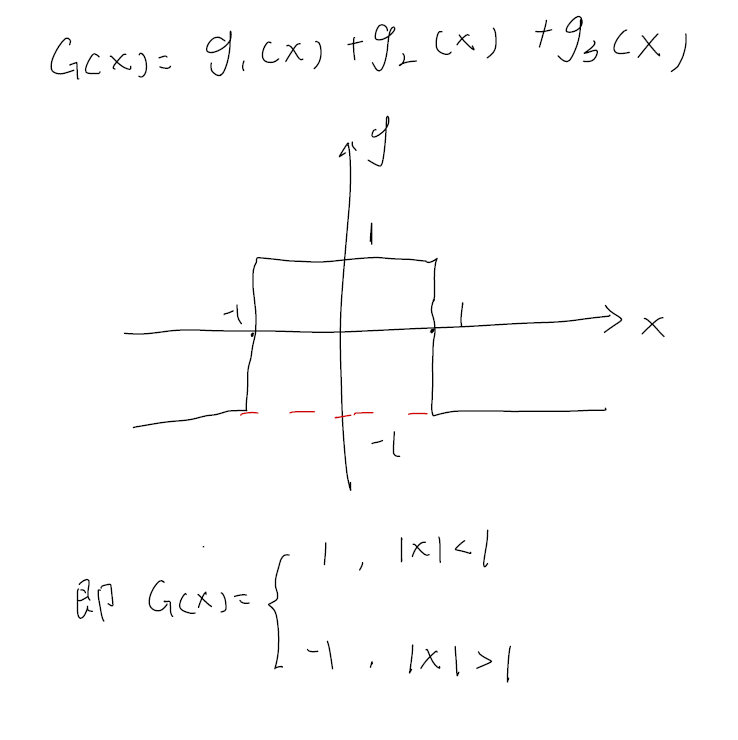 G(x)= g₁(x) +g₂(x) +g₃(x)
y
1
-1 1 x
-1
1 , |x|<1
即 G(x)={
-1 , |x|>1